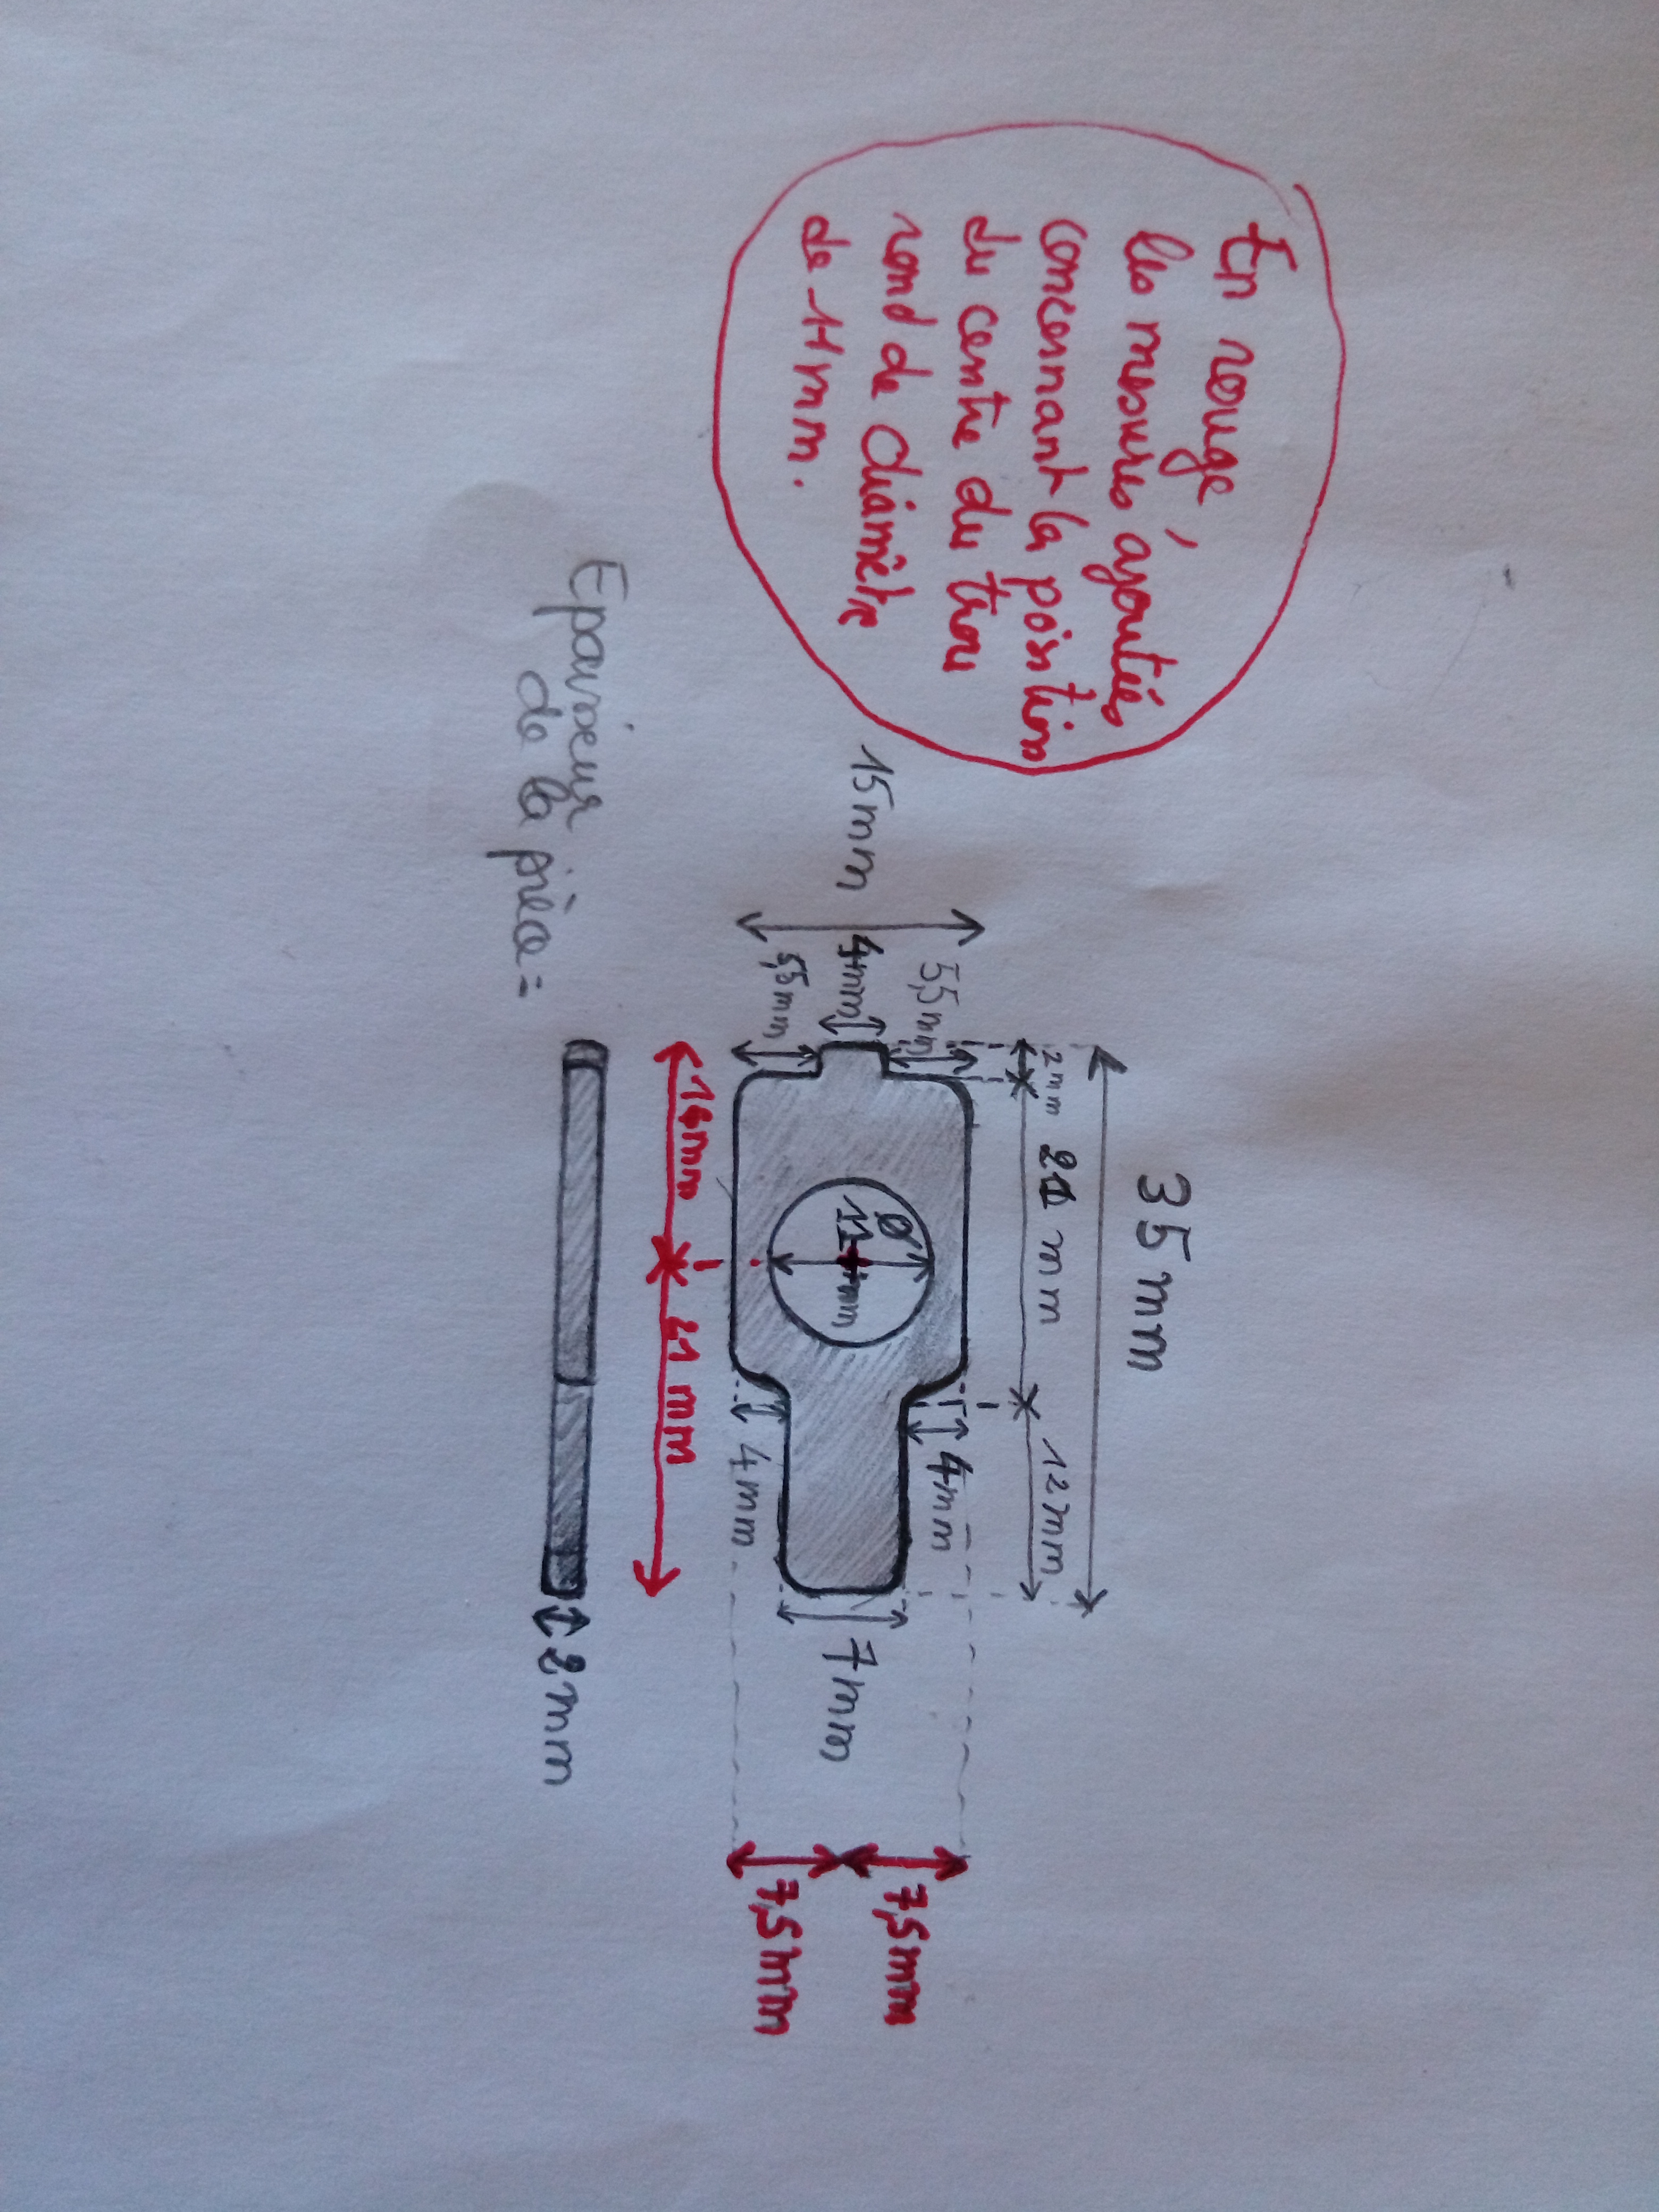 En rouge,
les mesures ajoutées
concernant la position
du centre du trou
rond de diamètre
de 11mm.
35mm
2mm
21 mm
12mm
15mm
5,5mm
4mm
5,5mm
Ø
11 mm
4mm
4mm
7mm
7,5mm
7,5mm
14mm
21mm
Epaisseur
de la pièce =
2mm